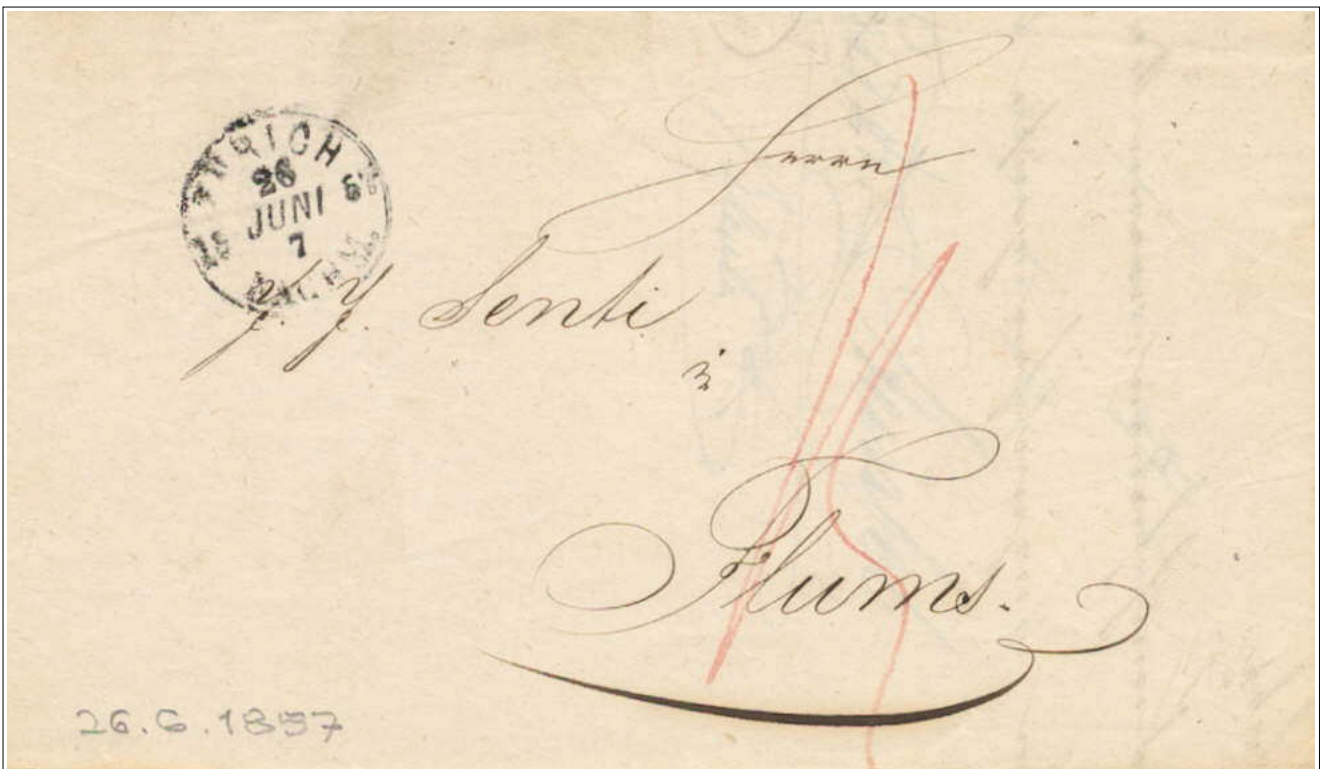 ZÜRICH
26
JUNI
7
Herrn
J. J. Senti
in
Flums.
26.6.1857